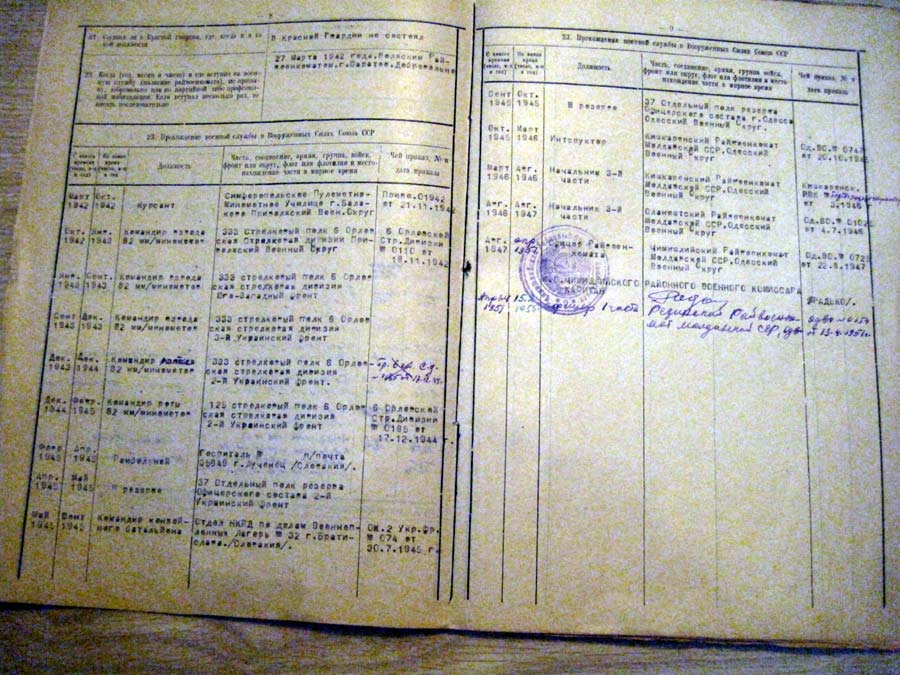 21. Состоял ли в Красной гвардии, где, когда и в какой должности
В Красной Гвардии не состоял
22. Когда (год, месяц и число) и где вступил на военную службу (название райвоенкомата), по призыву, добровольно или по партийной либо профсоюзной мобилизации. Если вступал несколько раз, то писать последовательно
27 Марта 1942 года,
военкоматом,г.Саратов.Добровольно
23. Прохождение военной службы в Вооруженных Силах Союза ССР
С какого времени (число, м-ц и год)
По какое время (число, м-ц и год)
Должность
Часть, соединение, армия, группа, войск, фронт или округ, флот или флотилия и местонахождение части в мирное время
Чей приказ, № и дата приказа
Март 1942
Окт. 1942
Курсант
Симферопольское Пулеметно-
Минометное Училище г.Бала-
ково Приволжск Воен.Округ
от 21.11.1942
Окт. 1942
Янв. 1943
Командир взвода
82 мм/минометов
333 Стрелковый полк 6 Орлов
ская Стрелковая дивизия При-
волжский Военный Округ
6 Орловской
Стр.Дивизии
№ 0110 от
18.11.1942
Янв. 1943
Сент. 1943
Командир взвода
82 мм/минометов
333 стрелковый полк 6 Орлов
ская стрелковая дивизия
Юго-Западный фронт
Сент. 1943
Дек. 1943
Командир взвода
82 мм/минометов
333 стрелковый полк 6 Орлов
ская стрелковая дивизия
3-й Украинский фронт
Дек. 1943
Дек. 1944
Командир
82 мм/минометов
333 стрелковый полк 6 Орлов
ская стрелковая дивизия
2-й Украинский фронт.
Дек. 1944
Февр. 1945
Командир роты
82 мм/минометов
125 стрелковый полк 6 Орлов
ская стрелковая дивизия
2-й Украинский фронт
6 Орловской
Стр.Дивизии
№ 0185 от
17.12.1944 г.
Февр 1945
Апр. 1945
Госпиталь № п/почта
г.Лученец /Словакия/.
Апр. 1945
Май 1945
В резерве
37 Отдельный полк резерва
Офицерского состава 2-й
Украинский фронт
Май 1945
Сент 1945
Командир конвой-
ного батальйона
Отдел НКВД по делам Военноп-
ленных Лагерь № 32 г.Брати-
слава./Словакия/.
Ок.2 Укр.Фр.
№ 074 от
30.7.1945 г.
23. Прохождение военной службы в Вооруженных Силах Союза ССР
С какого времени (число, м-ц и год)
По какое время (число, м-ц и год)
Должность
Часть, соединение, армия, группа войск, фронт или округ, флот или флотилия и местонахождение части в мирное время
Чей приказ, № и дата приказа
Сент 1945
Окт. 1945
В резерве
37 Отдельный полк резерва
Офицерского состава г.Одесса
Одесский Военный Округ.
Окт. 1945
Март 1946
Интсруктор
Кизкаренский Райвоенкомат
Молдавской ССР.Одесский
Военный Округ
Од.ВО.№ 0747
от 20.10.1945
Март 1946
Авг. 1946
Начальник 3-й
части
Кизкаренский Райвоенкомат
Молдавской ССР,Одесский
Военный Округ
Кизкаренск.
РВК №
3.1946
Авг. 1946
Авг. 1947
Начальник 3-й
части
Олонештский Райвоенкомат
Молдавской ССР.Одесский
Военный Округ
Од.ВО.№ 01025
от 4.7.1946
Авг. 1947
апр. 1951
Чимишлийский Райвоенкомат
Молдавской ССР.Одесский
Военный Округ
Од.ВО.№ 0725
от 22.8.1947
ЧИМИШЛИЙСКОГО РАЙОННОГО ВОЕННОГО КОМИССАРА
КАПИТАН
/РАДЬКО/.
1951
1 части
Резинский Райвоенко
мат молдавской ССР,